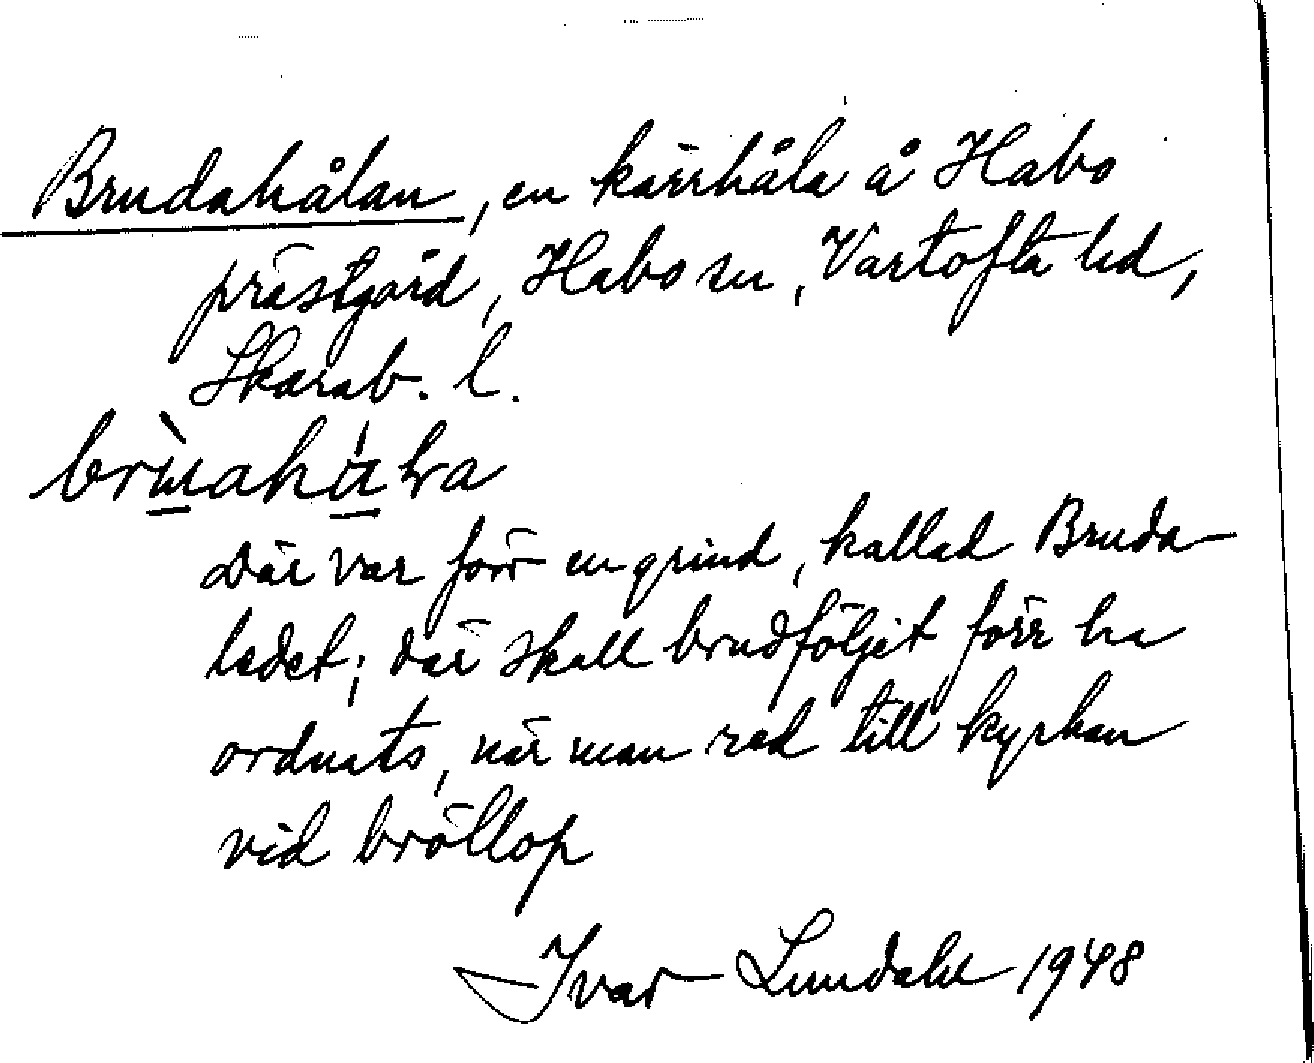 Brudahålan, en kärrhåla å Habo
prästgård, Habo sn, Vartofta hd,
Skarab. l.
Där var förr en grind, kallad Bruda-
ledet; där skall brudföljet förr ha
ordnats, när man red till kyrkan
vid bröllop
Ivar Lundahl 1948